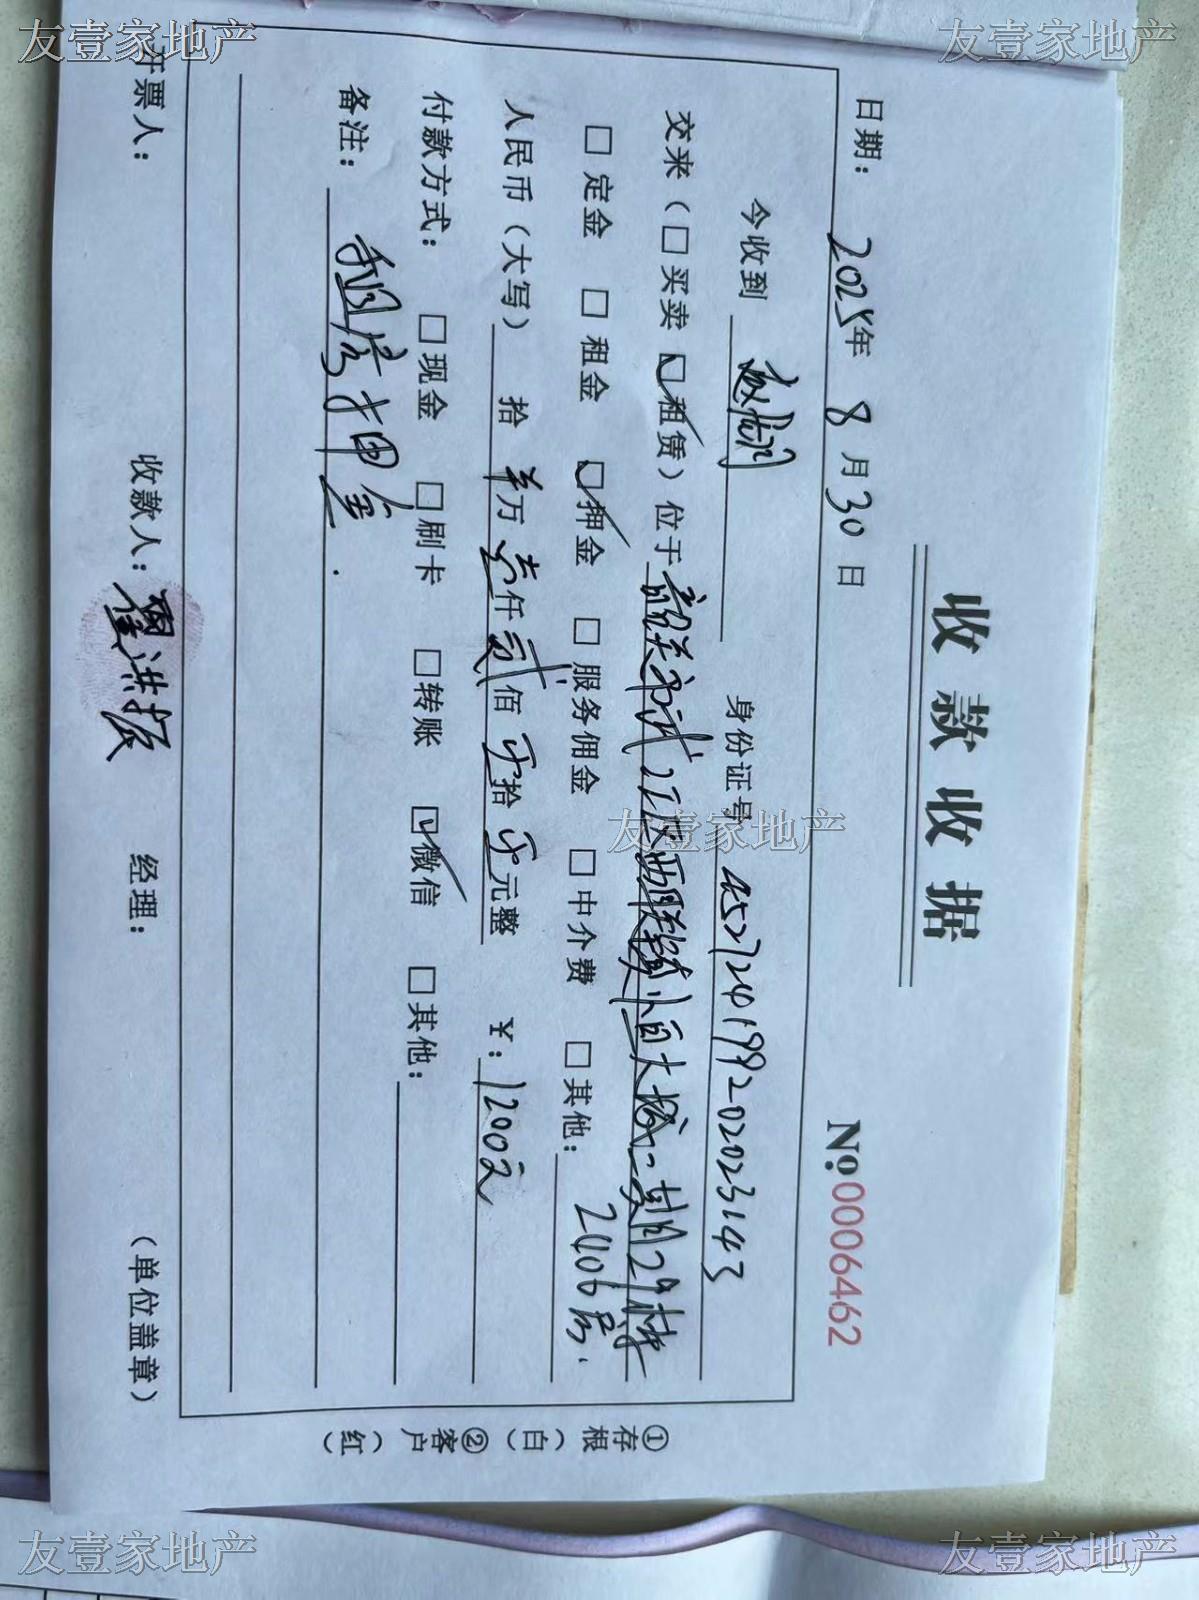 友壹家地产
友壹家地产
收款收据
No 0006462
日期: 2025年 8月30日
今收到 赵 身份证号 452724199202023143
交来(□买卖 ☑租赁)位于韶关市武江区西联镇恒大城二期29栋
2406房.
□定金 □租金 ☑押金 □服务佣金 □中介费 □其他:
人民币(大写) 拾 羊万 壹仟 贰佰 零拾 零元整 ¥: 1200元
付款方式: □现金 □刷卡 □转账 ☑微信 □其他:
备注: 租房押金.
开票人: 收款人: 瞿洪振 经理: (单位盖章)
①存根(白) ②客户(红)
友壹家地产
友壹家地产
友壹家地产